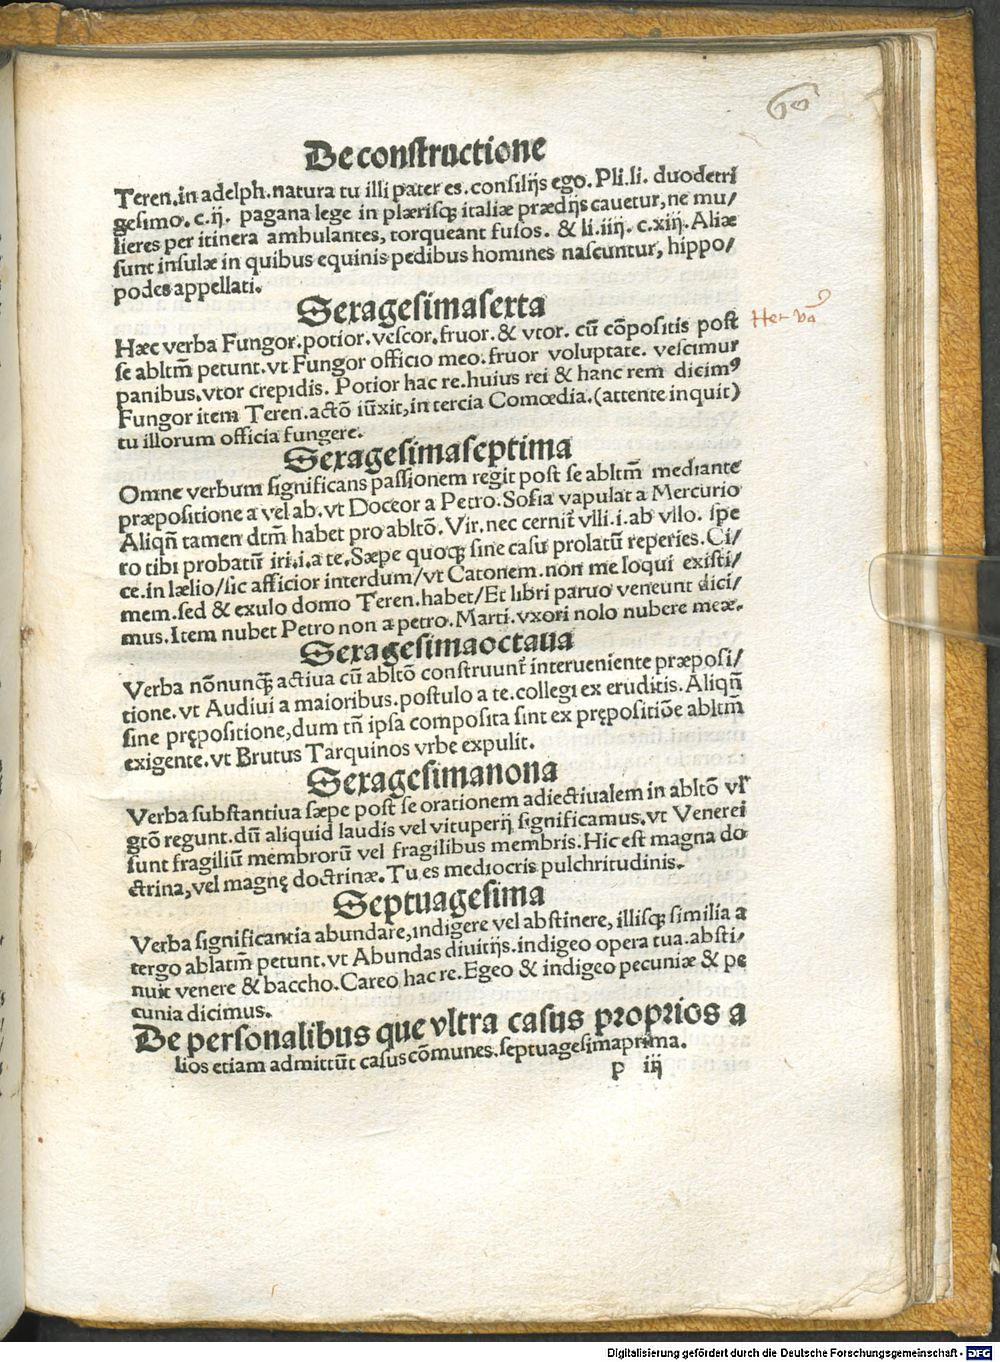 De constructione
Teren.in adelph.natura tu illi pater es.consilijs ego.Pli.li. duodetri
gesimo.c.ij. pagana lege in plærisqȝ italiæ prædijs cauetur,ne mu/
lieres per itinera ambulantes, torqueant fusos. & li.iiij. c.xiij. Aliæ
sunt insulæ in quibus equinis pedibus homines nascuntur, hippo/
podes appellati.
Sexagesimasexta
Hæc verba Fungor.potior.vescor.fruor.& vtor. cū cōpositis post
se abltm̄ petunt.vt Fungor officio meo.fruor voluptate. vescimur
panibus.vtor crepidis. Potior hac re.huius rei & hanc rem dicimꝰ
Fungor item Teren.actō iūxit,in tercia Comœdia.(attente inquit)
tu illorum officia fungere.
Sexagesimaseptima
Omne verbum significans passionem regit post se abltm̄ mediante
præpositione a vel ab.vt Doceor a Petro.Sofia vapulat a Mercurio
Aliqn̄ tamen dtm̄ habet pro abltō.Vir.nec cernit̄ vlli.i.ab vllo. spe
ro tibi probatū iri.i.a te.Sæpe quoqȝ sine casu prolatū reperies.Ci/
ce.in lælio/sic afficior interdum/vt Catonem.non me loqui existi/
mem.sed & exulo domo Teren.habet/Et libri paruo veneunt dici/
mus.Item nubet Petro non a petro.Marti.vxori nolo nubere meæ.
Sexagesimaoctaua
Verba nōnunqȝ̄ actiua cū abltō construunt̄ interueniente præposi/
tione.vt Audiui a maioribus.postulo a te.collegi ex eruditis.Aliqn̄
sine prępositione,dum tn̄ ipsa composita sint ex prępositiōe abltm̄
exigente.vt Brutus Tarquinos vrbe expulit.
Sexagesimanona
Verba substantiua sæpe post se orationem adiectiualem in abltō vl'
gtō regunt.dū aliquid laudis vel vituperij significamus.vt Venerei
sunt fragiliū membrorū vel fragilibus membris.Hic est magna do
ctrina,vel magnę doctrinæ.Tu es mediocris pulchritudinis.
Septuagesima
Verba significantia abundare,indigere vel abstinere, illisqȝ similia a
tergo ablatm̄ petunt.vt Abundas diuitijs.indigeo opera tua.absti/
nuit venere & baccho.Careo hac re.Egeo & indigeo pecuniæ & pe
cunia dicimus.
De personalibus que vltra casus proprios a
lios etiam admittūt casus cōmunes.septuagesimaprima.
p iij
Digitalisierung gefördert durch die Deutsche Forschungsgemeinschaft - DFG